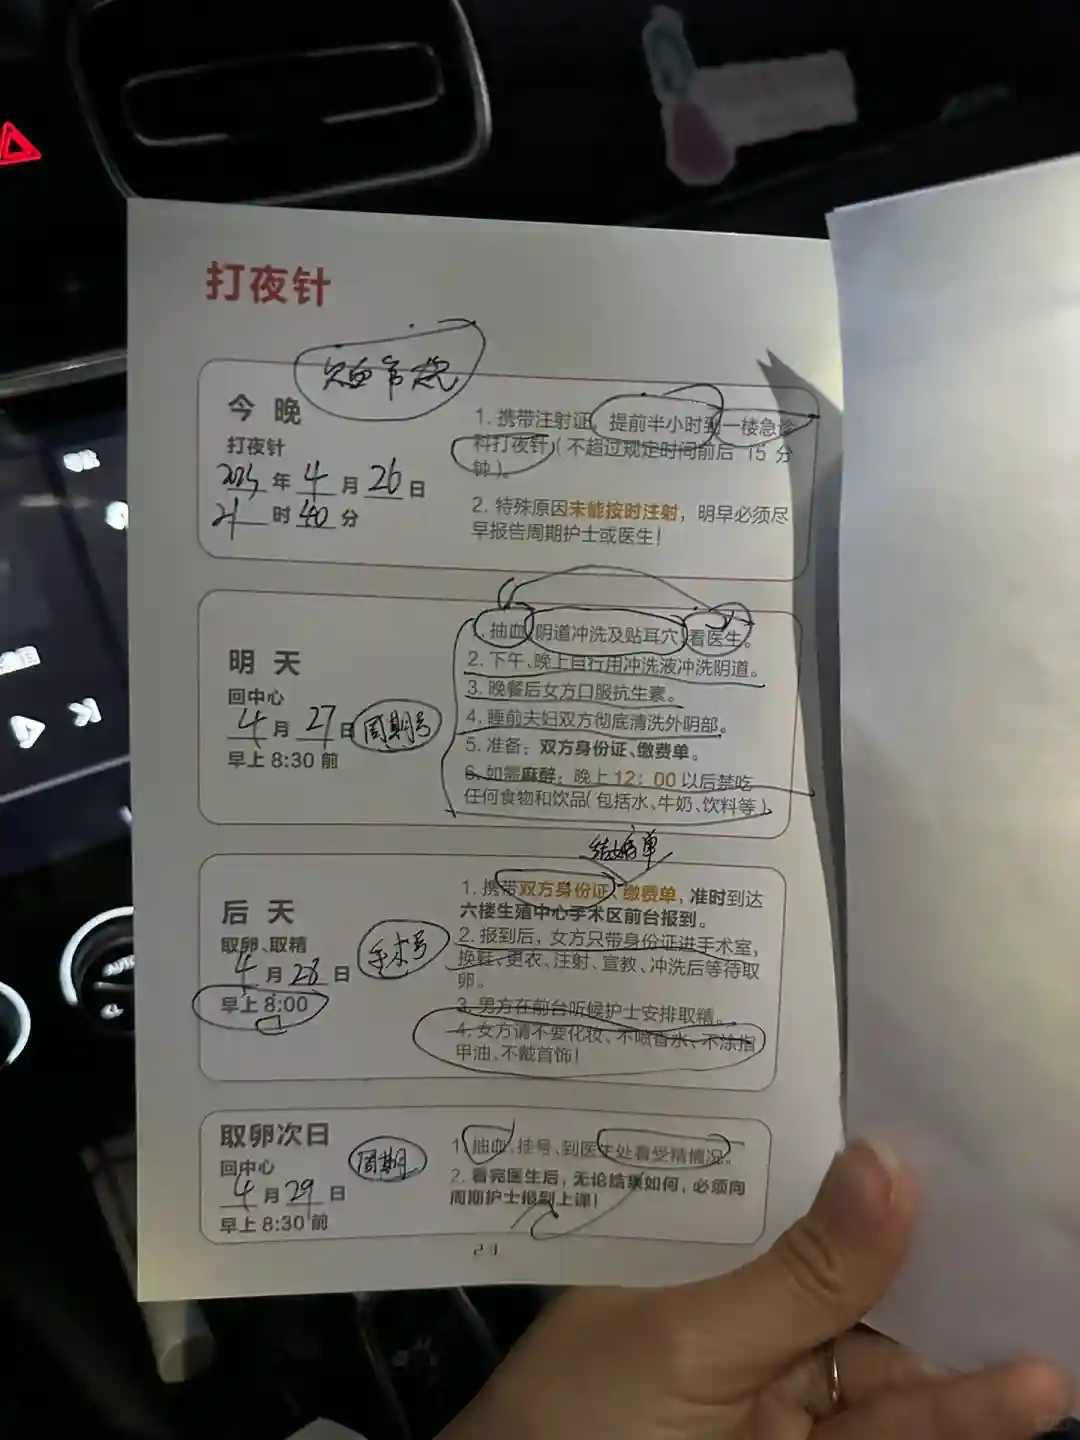 打夜针
欠血常规
今晚
打夜针
2025年4月26日
21时40分
1. 携带注射证，提前半小时到一楼急诊
科打夜针（不超过规定时间前后 15 分
钟）。
2. 特殊原因未能按时注射，明早必须尽
早报告周期护士或医生！
明天
回中心
4月27日
周期号
早上 8:30 前
抽血、阴道冲洗及贴耳穴、看医生。
2. 下午、晚上自行用冲洗液冲洗阴道。
3. 晚餐后女方口服抗生素。
4. 睡前夫妇双方彻底清洗外阴部。
5. 准备：双方身份证、缴费单。
6. 如需麻醉：晚上 12：00 以后禁吃
任何食物和饮品（包括水、牛奶、饮料等）
后天
取卵、取精
4月28日
手术号
早上 8:00
1. 携带双方身份证、缴费单，准时到达
六楼生殖中心手术区前台报到。
2. 报到后，女方只带身份证进手术室，
换鞋、更衣、注射、宣教、冲洗后等待取
卵。
3. 男方在前台听候护士安排取精。
4. 女方请不要化妆、不喷香水、不涂指
甲油、不戴首饰！
取卵次日
回中心
4月29日
周期
早上 8:30 前
1. 抽血、挂号、到医生处看受精情况。
2. 看完医生后，无论结果如何，必须向
周期护士报到上课！